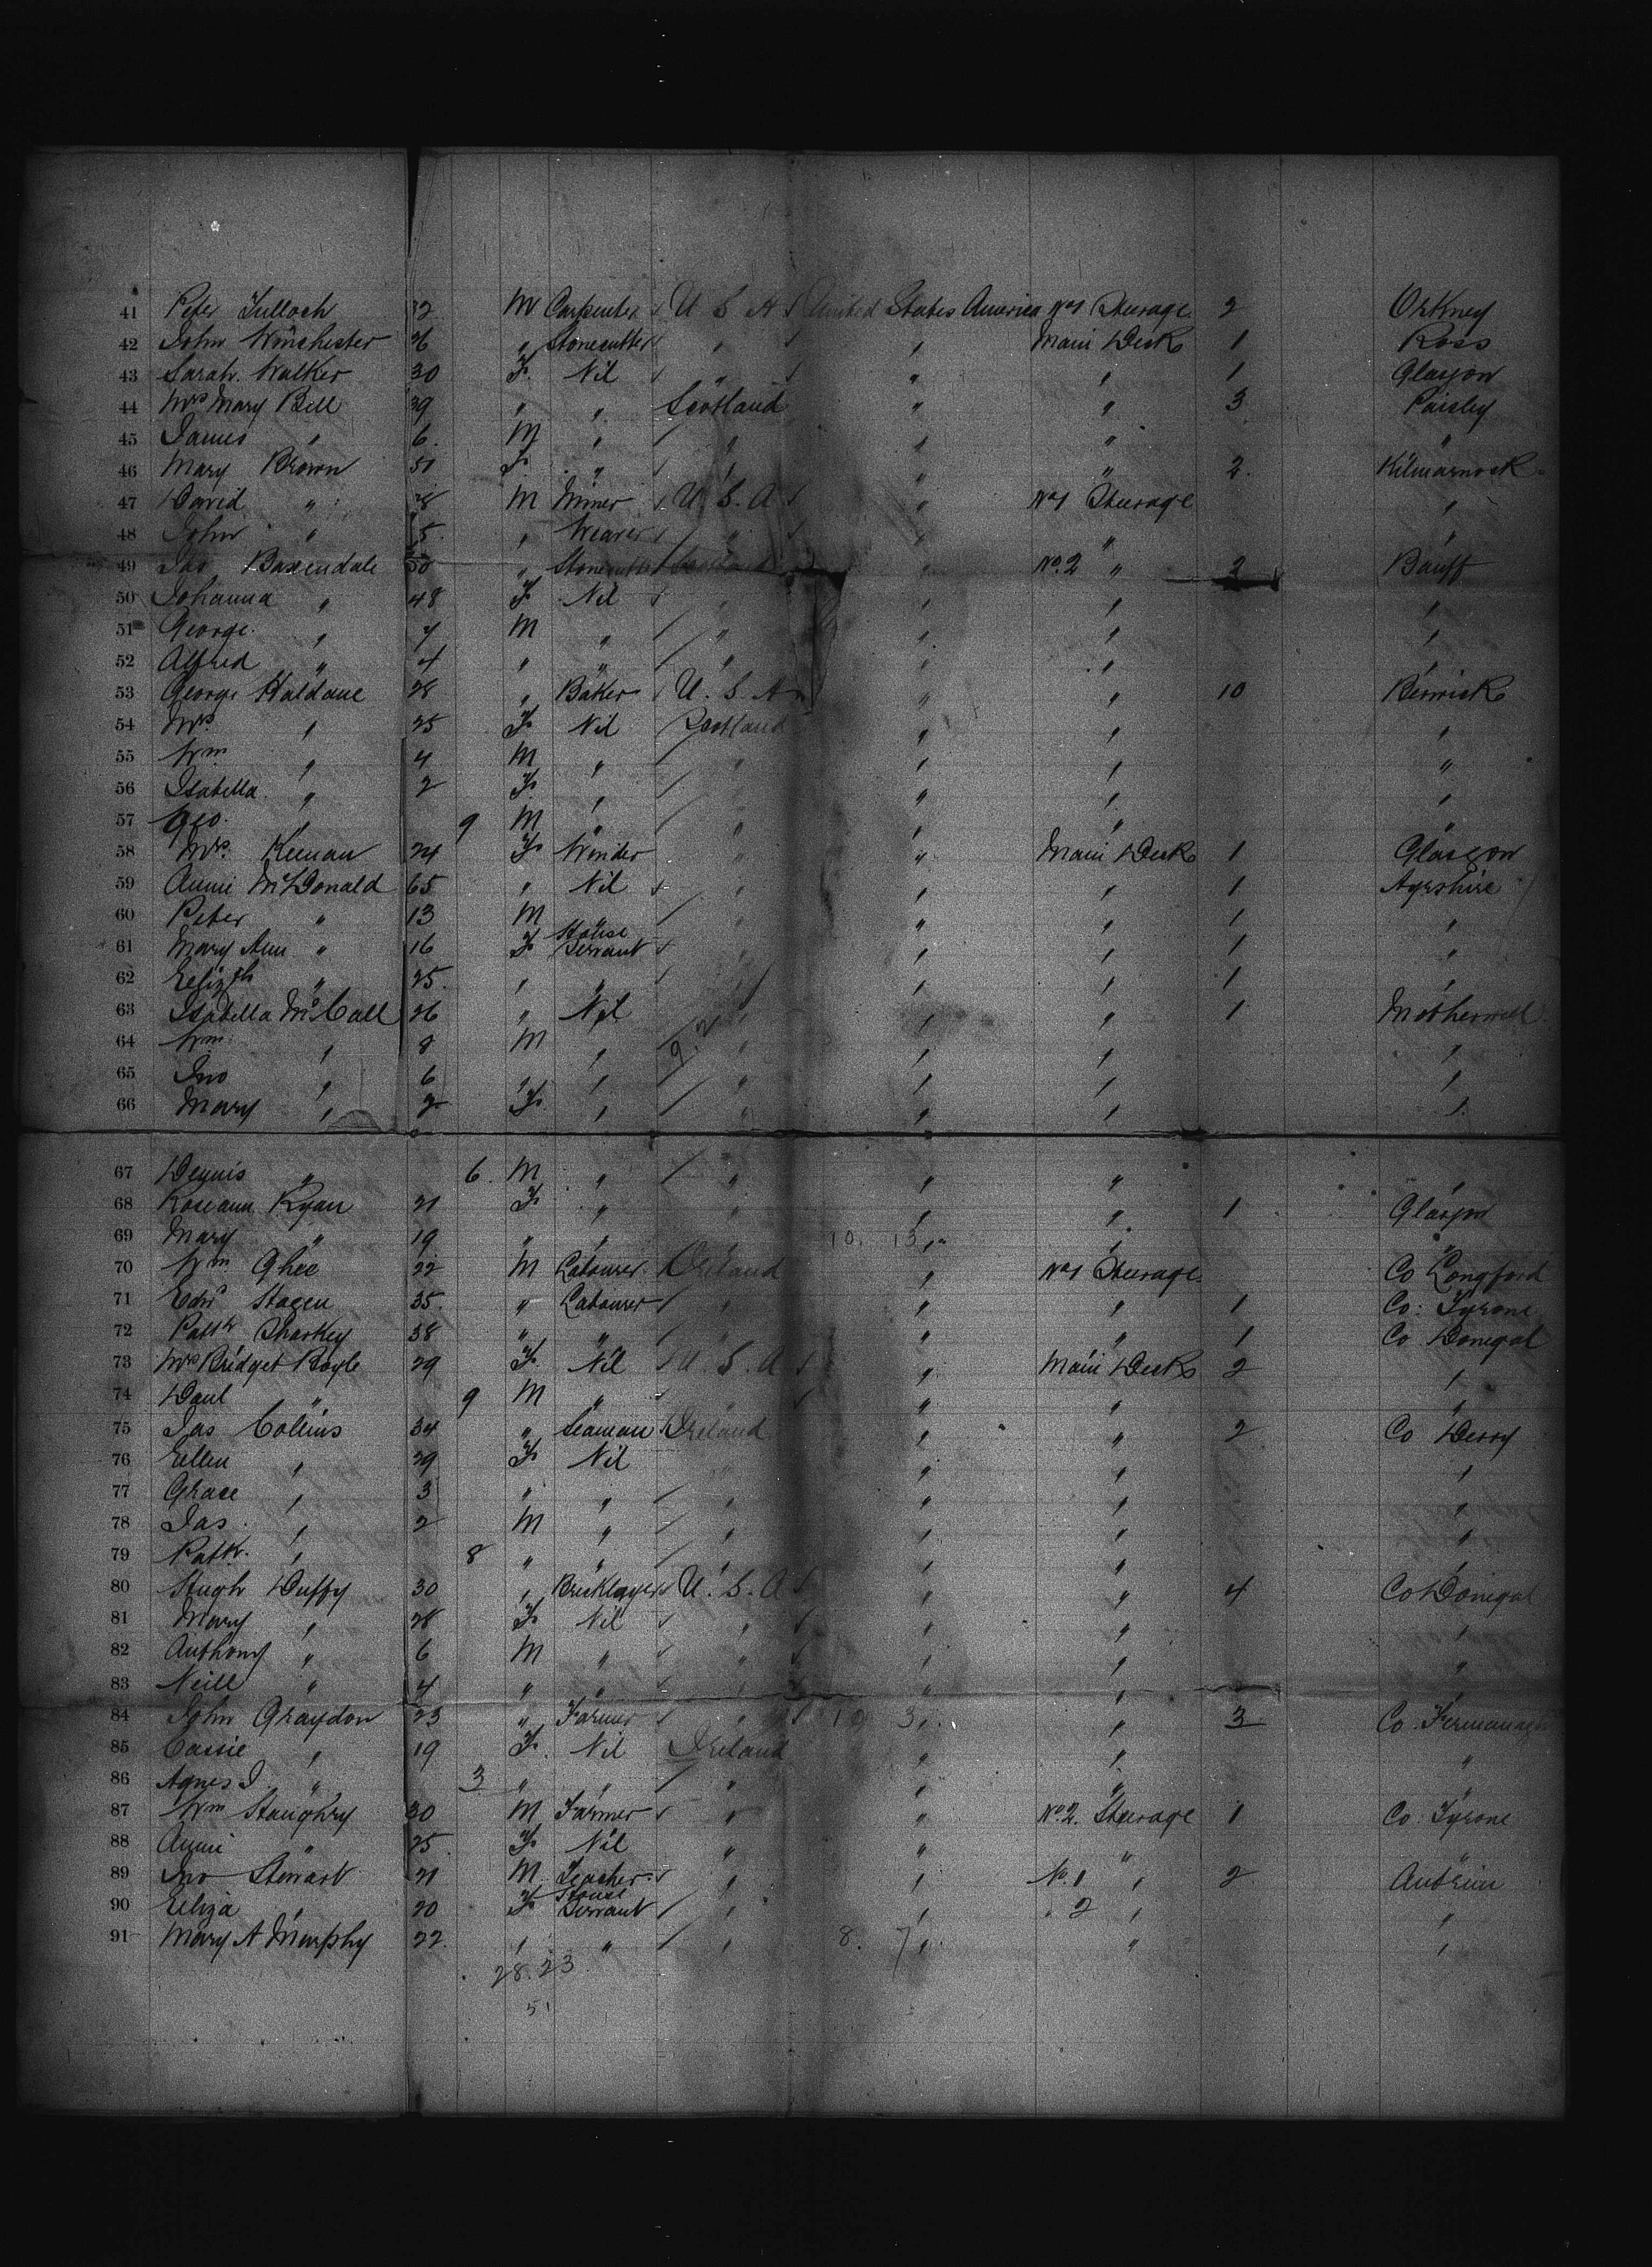 41 Peter Tulloch 32 M Carpenter U S A United States America No 1 Steerage 2 Orkney
42 John Winchester 26 " Stonecutter " " Main Deck 1 Ross
43 Sarah Walker 30 F. Nil " " " 1 Glasgow
44 Mrs Mary Bell 39 " " Scotland " " 3 Paisley
45 James " 6. M " " " " "
46 Mary Brown 51 F " " " " 2. Kilmarnock
47 David " 28 M Miner U. S. A " No 1 Steerage "
48 John " 15. " Weaver " " " "
49 Jas Baxendale 50 " Stonecutter Scotland " No. 2 " 2 Banff
50 Johanna " 48 F Nil " " " "
51 George " 7 M " " " " "
52 Alfred " 4 " " " " " "
53 George Haldane 28 " Baker U. S. A " " 10 Berwick
54 Mrs " 25 F Nil Scotland " " "
55 Wm " 4 M " " " " "
56 Isabella " 2 F. " " " " "
57 Geo. " 9 M " " " "
58 Mrs. Keenan 24 F Winder " " Main Deck 1 Glasgow
59 Annie McDonald 65 " Nil " " " 1 Ayrshire
60 Peter " 13 M " " " " 1 "
61 Mary Ann " 16 F House Servant " " " 1 "
62 Elizth " 25. " " " " " 1 "
63 Isabella McCall 26 " Nil " " " 1 Motherwell
64 Wm " 8 M " " " " "
65 Jno " 6 " " " " " "
66 Mary " 2 F. " " " " "
67 Dennis " 6. M " " " " "
68 Roseann Ryan 21 F " " " " 1 Glasgow
69 Mary " 19 " " " 10. 13 " " "
70 Wm Ghee 22 M Labourer Ireland " No 1 Steerage Co Longford
71 Edwd 35. " Labourer " " " 1 Co: Tyrone
72 Patk Sharkey 38 " " " " " 1 Co Donegal
73 Mrs Bridget Boyle 29 F Nil U. S. A " Main Deck 2 "
74 Danl " 9 M " " " "
75 Jas Collins 34 " Seaman Ireland " " 2 Co Derry
76 Ellen " 29 F Nil " " " "
77 Grace " 3 " " " " " "
78 Jas. " 2 M " " " " "
79 Patk. " 8 " " " " "
80 Hugh Duffy 30 " Bricklayer U. S. A " " 4 Co Donegal
81 Mary " 28 F Nil " " " "
82 Anthony " 6 M " " " " "
83 Neill " 4 " " " " " "
84 John Graydon 23 " Farmer " 10 3 " " 3 Co. Fermanagh
85 Cassie " 19 F. Nil Ireland " " "
86 Agnes J. " 3 " " " " "
87 Wm 30 M Farmer " " No. 2. Steerage 1 Co: Tyrone
88 Annie " 25. F Nil " " " "
89 Jno Stewart 21 M Teacher " " No. 1 " 2 Antrim
90 Eliza " 20 F House Servant " " " 2 " "
91 Mary A Murphy 22. " " " 8. 7 " " "
28. 23
51